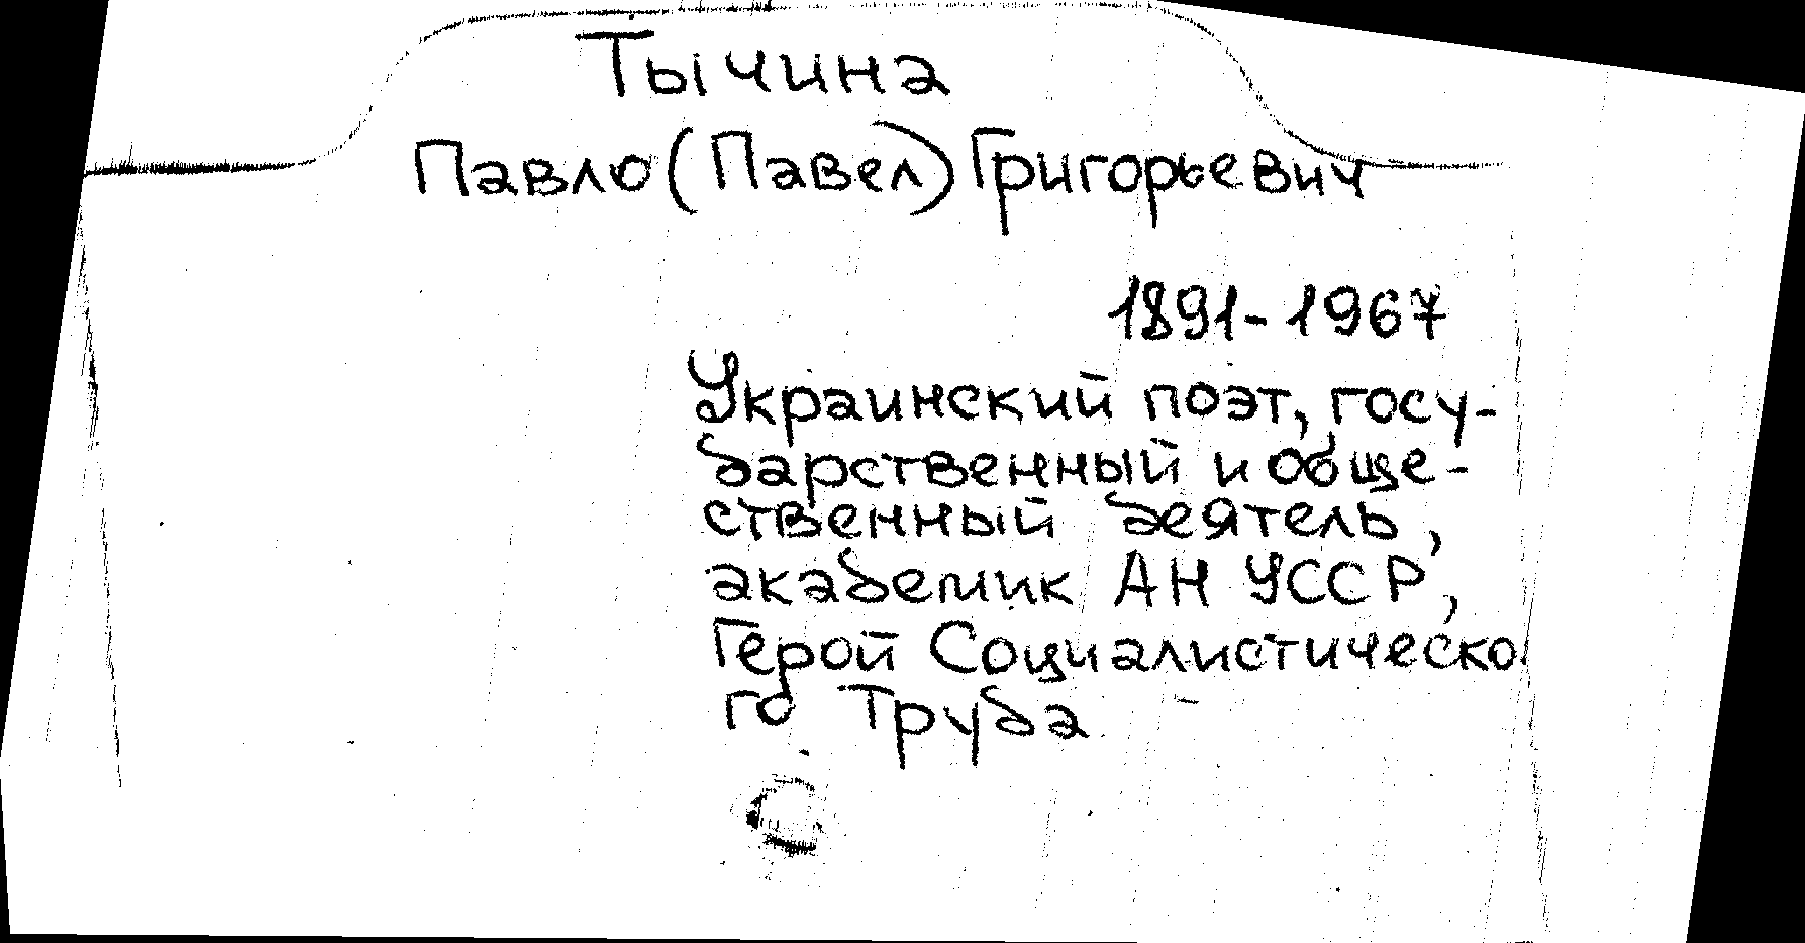 Тычина
Павло (Павел) Григорьевич
1891-1967
Украинский поэт, госу-
дарственный и обще-
ственный деятель,
академик АН УССР,
Герой Социалистическо
го Труда